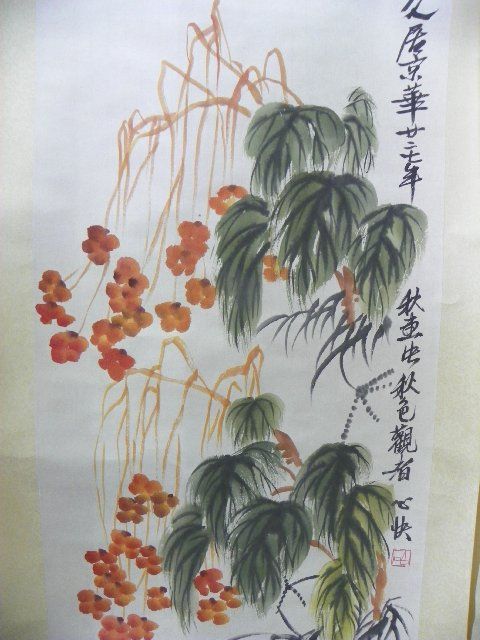 久居京華廿三年
秋画出秋色觀者心快